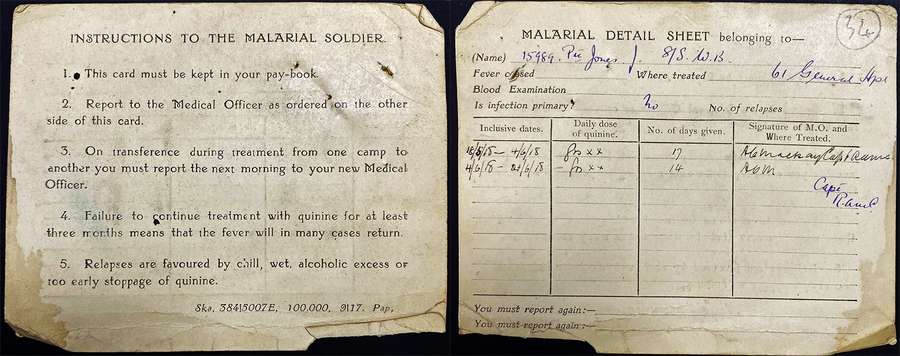 INSTRUCTIONS TO THE MALARIAL SOLDIER.
1. This card must be kept in your pay-book.
2. Report to the Medical Officer as ordered on the other
side of this card.
3. On transference during treatment from one camp to
another you must report the next morning to your new Medical
Officer.
4. Failure to continue treatment with quinine for at least
three months means that the fever will in many cases return.
5. Relapses are favoured by chill, wet, alcoholic excess or
too early stoppage of quinine.
Ska, 384|5007E, 100,000, 9|17. Pap,
34
MALARIAL DETAIL SHEET belonging to—
(Name) 15989. Pte Jones J. 8/S. W. B.
Fever ceased Where treated 61 General Hpl
Blood Examination
Is infection primary? No No. of relapses
Inclusive dates. Daily dose of quinine. No. of days given. Signature of M.O. and Where Treated.
18/5/18 – 4/6/18 grs xx 17 Capt RAMC
4/6/18 – grs xx 14 AGM
Capt
R.A.M.C.
You must report again:—
You must report again:—